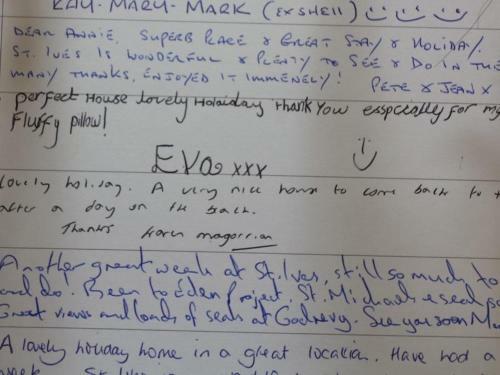 KAY-MARY-MARK (EX SHELL)
DEAR ANNIE, SUPERB PLACE & GREAT STAY & HOLIDAY.
ST. IVES IS WONDERFUL & PLENTY TO SEE & DO IN THE
MANY THANKS, ENJOYED IT IMMENELY! PETE & JEAN X
perfect House lovely Holaiday thank you esspcially for my
Fluffy pillow!
EVa xxx
lovely holiday. A very nice house to come back to
after a day on the beach.
Thanks Karen magorrian
Another great week at St. Ives, still so much to
and do. Been to Eden Project, St. Michaels & seal
Great views and loads of seals at Godrevy. See you soon
A lovely holiday home in a great location. Have had a